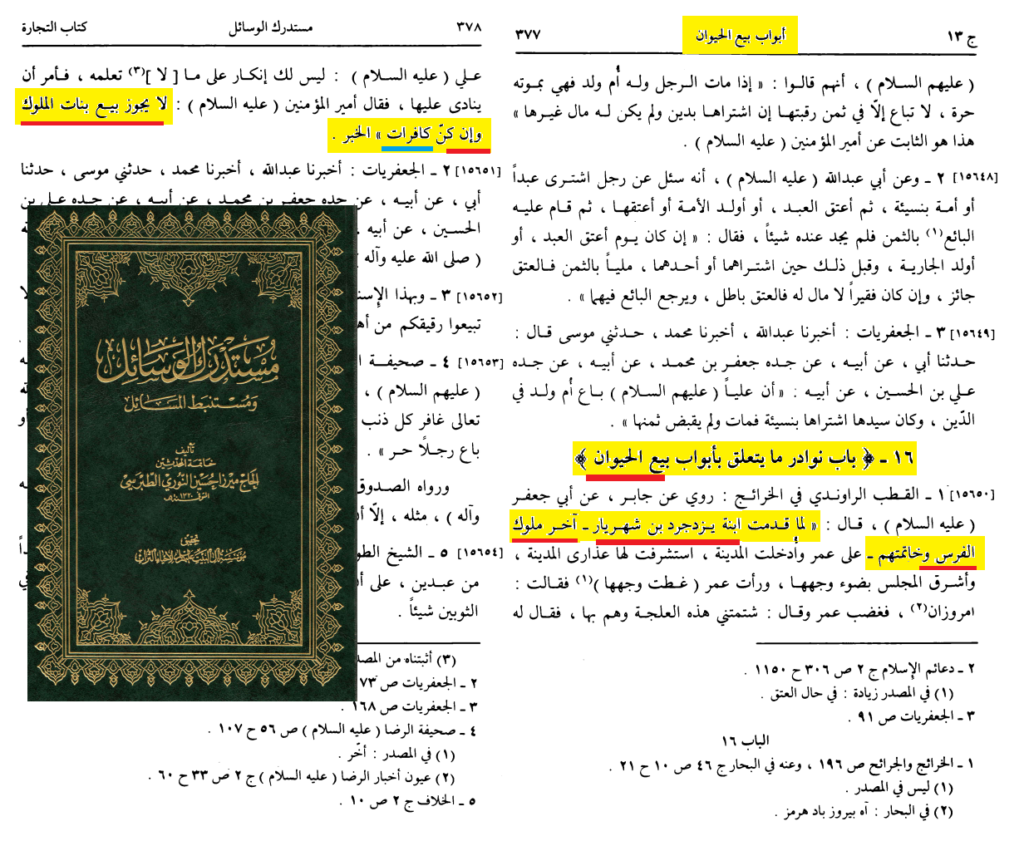 ج ١٣ أبواب بيع الحيوان ٣٧٧
( عليهم السلام ) ، أنهم قالوا : « إذا مات الرجل وله أم ولد فهي بموته
حرة ، لا تباع إلّا في ثمن رقبتها إن اشتراها بدين ولم يكن له مال غيرها »
هذا هو الثابت عن أمير المؤمنين ( عليه السلام ) .
[١٥٦٤٨] ٢ ـ وعن أبي عبدالله ( عليه السلام ) ، أنه سئل عن رجل اشترى عبداً
أو أمة بنسيئة ، ثم أعتق العبد ، أو أولد الأمة أو أعتقها ، ثم قام عليه
البائع(١) بالثمن فلم يجد عنده شيئاً ، فقال : « إن كان يوم أعتق العبد ، أو
أولد الجارية ، وقبل ذلك حين اشتراهما أو أحدهما ، ملياً بالثمن فالعتق
جائز ، وإن كان فقيراً لا مال له فالعتق باطل ، ويرجع البائع فيهما » .
[١٥٦٤٩] ٣ ـ الجعفريات : أخبرنا عبدالله ، أخبرنا محمد ، حدثني موسى قال :
حدثنا أبي ، عن أبيه ، عن جده جعفر بن محمد ، عن أبيه ، عن جده
علي بن الحسين ، عن أبيه : « أن علياً ( عليهم السلام ) باع أم ولد في
الدّين ، وكان سيدها اشتراها بنسيئة فمات ولم يقبض ثمنها » .
١٦ ـ ﴿ باب نوادر ما يتعلق بأبواب بيع الحيوان ﴾
[١٥٦٥٠] ١ ـ القطب الراوندي في الخرائج : روي عن جابر ، عن أبي جعفر
( عليه السلام ) ، قال : « لما قدمت ابنة يزدجرد بن شهريار ـ آخر ملوك
الفرس وخاتمتهم ـ على عمر وأُدخلت المدينة ، استشرفت لها عذارى المدينة ،
وأشرق المجلس بضوء وجهها ، ورأت عمر ( غطت وجهها )(١) فقالت :
امروزان(٢) ، فغضب عمر وقال : شتمتني هذه العلجة وهم بها ، فقال له
٢ ـ دعائم الإسلام ج ٢ ص ٣٠٦ ح ١١٥٠ .
(١) في المصدر زيادة : في حال العتق .
٣ ـ الجعفريات ص ٩١ .
الباب ١٦
١ ـ الخرائج والجرائح ص ١٩٦ ، وعنه في البحار ج ٤٦ ص ١٠ ح ٢١ .
(١) ليس في المصدر .
(٢) في البحار : آه بيروز باد هرمز .
٣٧٨ مستدرك الوسائل كتاب التجارة
علي ( عليه السلام ) : ليس لك إنكار على ما [ لا ](٣) تعلمه ، فأمر أن
ينادى عليها ، فقال أمير المؤمنين ( عليه السلام ) : لا يجوز بيع بنات الملوك
وإن كنّ كافرات » الخبر .
[١٥٦٥١] ٢ ـ الجعفريات : أخبرنا عبدالله ، أخبرنا محمد ، حدثني موسى ، حدثنا
أبي ، عن أبيه ، عن جده جعفر بن محمد ، عن أبيه ، عن جده علي بن
الحسين ، عن أبيه ،
( صلى الله عليه وآله
[١٥٦٥٢] ٣ ـ وبهذا الإسن
تبيعوا رقيقكم من أه
[١٥٦٥٣] ٤ ـ صحيفة ا
( عليهم السلام ) ،
تعالى غافر كل ذنب
باع رجلاً حر » .
ورواه الصدوق
وآله ) ، مثله ، إلّا أن
[١٥٦٥٤] ٥ ـ الشيخ الطو
من عبدين ، على أن
الثوبين شيئاً .
(٣) أثبتناه من المصد
٢ ـ الجعفريات ص ٧٣
٣ ـ الجعفريات ص ١٦٨ .
٤ ـ صحيفة الرضا ( عليه السلام ) ص ٥٦ ح ١٠٧ .
(١) في المصدر : أخّر .
(٢) عيون أخبار الرضا ( عليه السلام ) ج ٢ ص ٣٣ ح ٦٠ .
٥ ـ الخلاف ج ٢ ص ١٠ .
مستدرك الوسائل
ومستنبط المسائل
تأليف
خاتمة المحدثين
الحاج ميرزا حسين النوري الطبرسي
المتوفى ١٣٢٠ هـ
تحقيق
مؤسسة آل البيت عليهم السلام لإحياء التراث